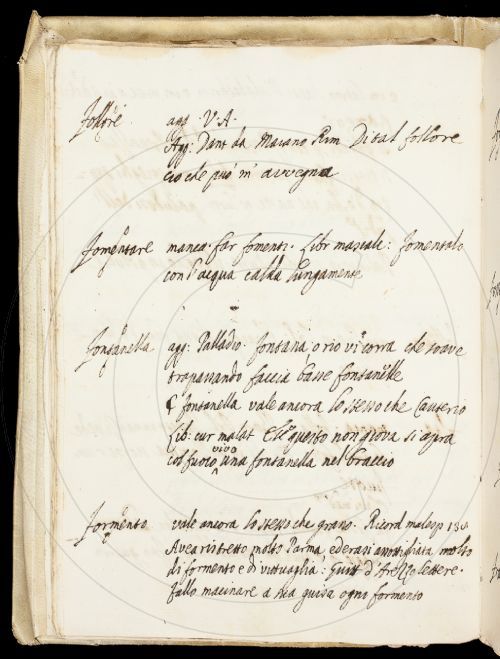 Follore agg. V.A.
Agg: Dant. da Maiano Rim. Di tal follore
ciò che può m' avvegna
Fomentare manca. far fomenti. Libr mascalc: fomentalo
con l'acqua calda lungamente
Fontanella agg: Palladio. fontana, o rio vi corra che soave
trapassando faccia basse fontanelle
& fontanella vale ancora lo stesso che Cauterio
Lib: cur malat. E se questo non giova si apra
col fuoco vivo una fontanella nel braccio
Formento vale ancora lo stesso che grano. Ricord malesp
Avea ristretto molto Parma, ed era si assottigliata molto
di formento e di vittuaglia: Guitt d'Arezzo lettere.
Fallo macinare a sua guisa ogni formento